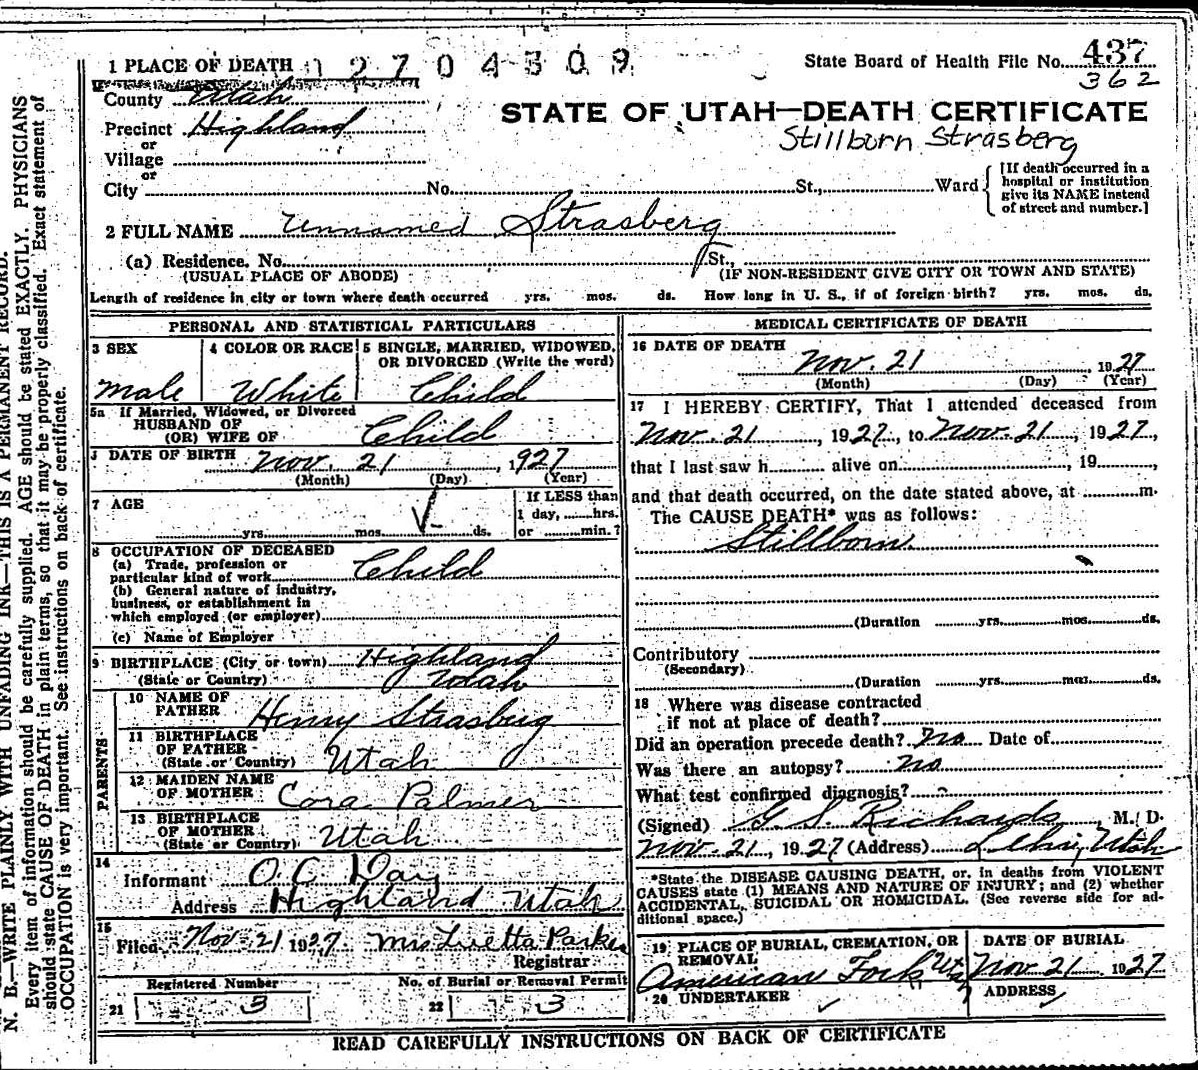 1 PLACE OF DEATH 2704309
State Board of Health File No. 437
362
County Utah
STATE OF UTAH—DEATH CERTIFICATE
Precinct Highland
Stillborn Strasberg
or
Village
or
City No. St., Ward
[If death occurred in a
hospital or institution
give its NAME instead
of street and number.]
2 FULL NAME Unnamed Strasberg
(a) Residence. No. St.,
(USUAL PLACE OF ABODE) (IF NON-RESIDENT GIVE CITY OR TOWN AND STATE)
Length of residence in city or town where death occurred yrs. mos. ds. How long in U. S., if of foreign birth? yrs. mos. ds.
PERSONAL AND STATISTICAL PARTICULARS
3 SEX
male
4 COLOR OR RACE
White
5 SINGLE, MARRIED, WIDOWED,
OR DIVORCED (Write the word)
Child
5a If Married, Widowed, or Divorced
HUSBAND OF
(OR) WIFE OF Child
DATE OF BIRTH Nov. 21, 1927
(Month) (Day) (Year)
7 AGE
yrs. mos. ds.
If LESS than
1 day, hrs.
or min.?
8 OCCUPATION OF DECEASED
(a) Trade, profession or
particular kind of work Child
(b) General nature of industry,
business, or establishment in
which employed (or employer)
(c) Name of Employer
9 BIRTHPLACE (City or town) Highland
(State or Country) Utah
PARENTS
10 NAME OF
FATHER Henry Strasburg
11 BIRTHPLACE
OF FATHER
(State or Country) Utah
12 MAIDEN NAME
OF MOTHER Cora Palmer
13 BIRTHPLACE
OF MOTHER
(State or Country) Utah
14
Informant O. C. Day
Address Highland Utah
15
Filed Nov 21 1927 Mrs Luetta Parker
Registrar
Registered Number No. of Burial or Removal Permit
21 3 22 3
MEDICAL CERTIFICATE OF DEATH
16 DATE OF DEATH
Nov. 21, 1927
(Month) (Day) (Year)
17 I HEREBY CERTIFY, That I attended deceased from
Nov. 21, 1927, to Nov. 21, 1927,
that I last saw h alive on, 19,
and that death occurred, on the date stated above, at m.
The CAUSE DEATH* was as follows:
Stillborn
(Duration yrs. mos. ds.
Contributory
(Secondary)
(Duration yrs. mos. ds.
18 Where was disease contracted
if not at place of death?
Did an operation precede death? No Date of
Was there an autopsy? no
What test confirmed diagnosis?
(Signed) G. S. Richards, M. D.
Nov. 21, 1927 (Address) Lehi, Utah
*State the DISEASE CAUSING DEATH, or, in deaths from VIOLENT
CAUSES state (1) MEANS AND NATURE OF INJURY; and (2) whether
ACCIDENTAL, SUICIDAL OR HOMICIDAL. (See reverse side for ad-
ditional space.)
19 PLACE OF BURIAL, CREMATION, OR
REMOVAL
American Fork Utah
DATE OF BURIAL
Nov 21 1927
20 UNDERTAKER
ADDRESS
READ CAREFULLY INSTRUCTIONS ON BACK OF CERTIFICATE
N. B.—WRITE PLAINLY WITH UNFADING INK—THIS IS A PERMANENT RECORD.
Every item of information should be carefully supplied. AGE should be stated EXACTLY. PHYSICIANS
should state CAUSE OF DEATH in plain terms, so that it may be properly classified. Exact statement of
OCCUPATION is very important. See instructions on back of certificate.